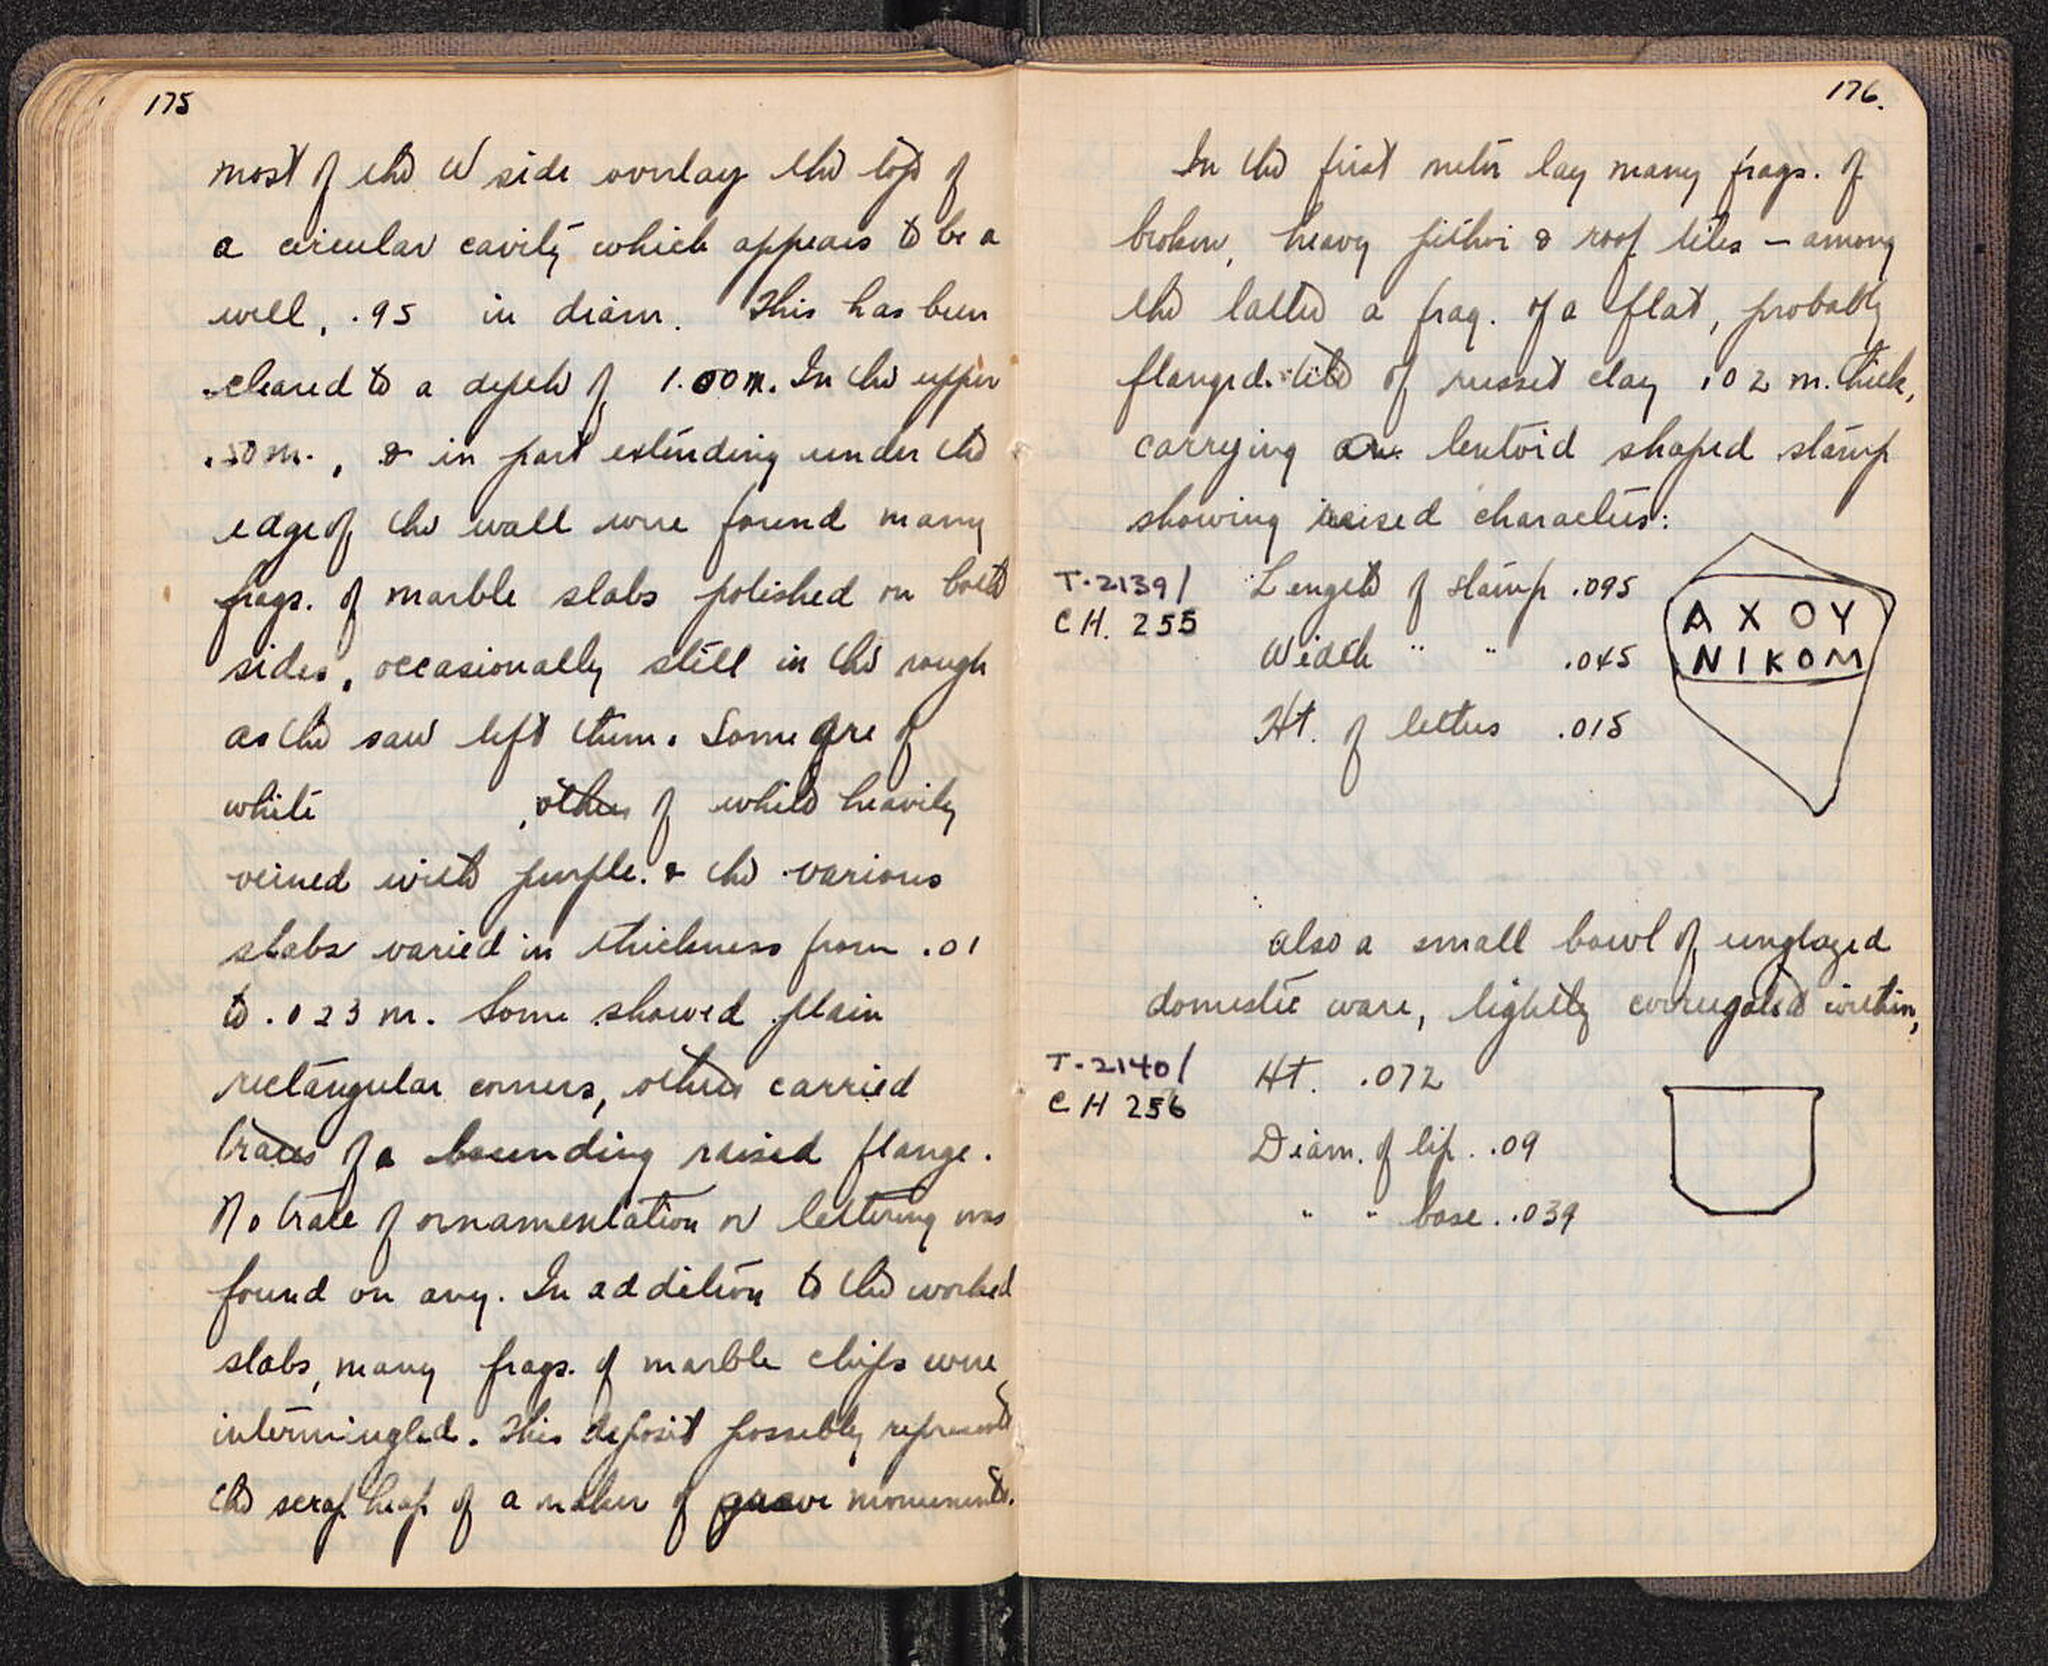 175
most of the W side overlay the top of
a circular cavity which appears to be a
well, .95 in diam. This has been
cleared to a depth of 1.00 m. In the upper
.50 m., & in part extending under the
edge of the wall were found many
frags. of marble slabs polished on both
sides, occasionally still in the rough
as the saw left them. Some are of
white , others of white heavily
veined with purple. & the various
slabs varied in thickness from .01
to .023 m. Some showed plain
rectangular corners, others carried
traces of a bounding raised flange.
No trace of ornamentation or lettering was
found on any. In addition to the worked
slabs, many frags. of marble chips were
intermingled. This deposit possibly represents
the scrap heap of a maker of grave monuments.
176.
In the first meter lay many frags. of
broken, heavy pithoi & roof tiles – among
the latter a frag. of a flat, probably
flanged tile of russet clay .02 m. thick,
carrying a lentoid shaped stamp
showing raised characters:
T-2139/
CH. 255
Length of stamp .095
Width " " .045
Ht. of letters .015
A X O Y
N I K O M
also a small bowl of unglazed
domestic ware, lightly corrugated within,
T-2140/
CH 256
Ht. .072
Diam. of lip. .09
" " base. .039